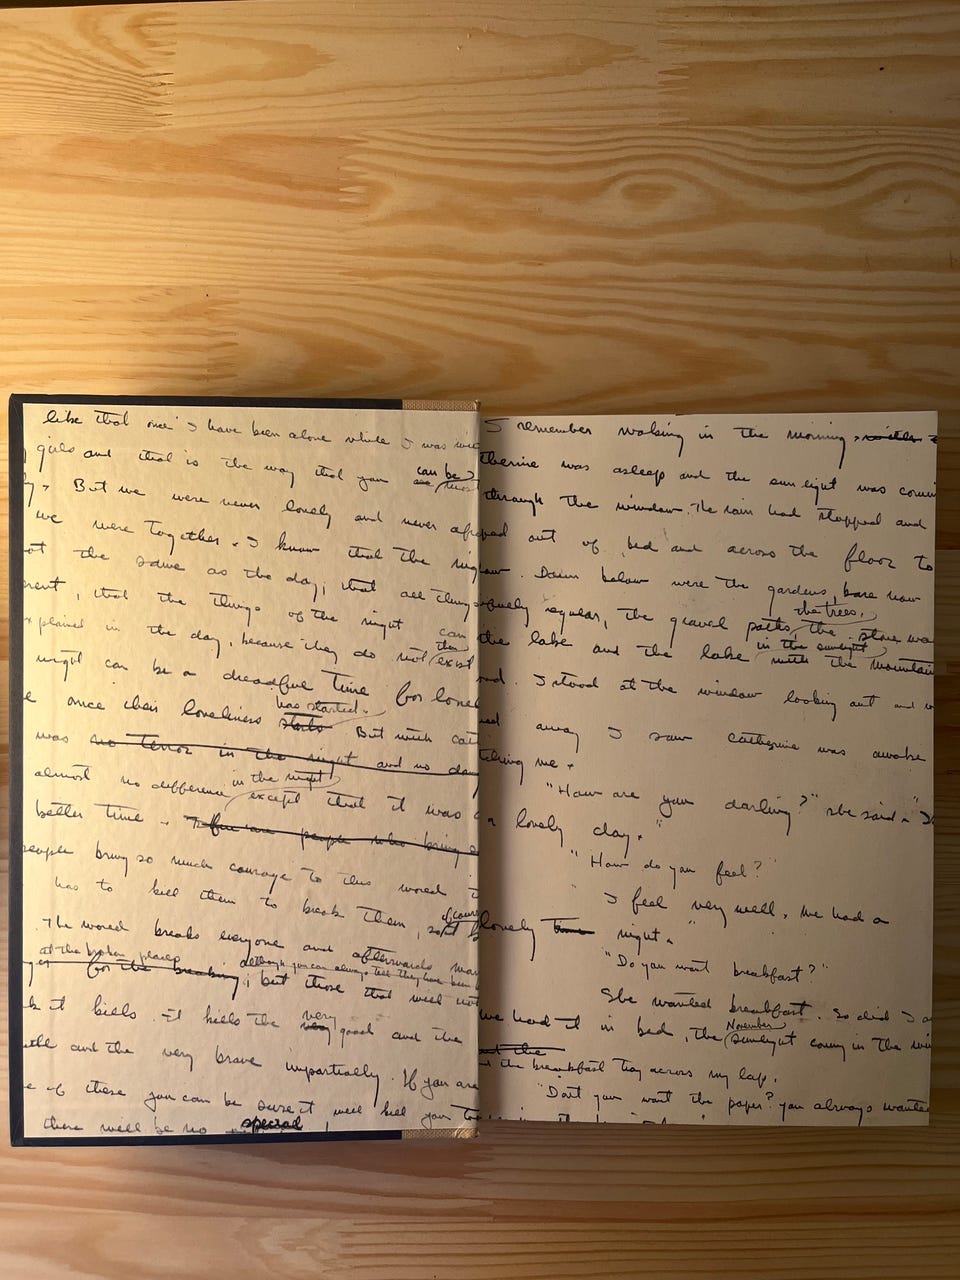 like that once I have been alone while I was
girls and that is the way that you can be
But we were never lonely and never
we were together. I know that the
ot the same as the day; that all things
erent, that the things of the night can
xplained in the day, because they do not then exist
night can be a dreadful time for
e once their loneliness starts has started. But with
was no terror in the night and no
almost no difference in the night except that it was
better time. few are people who bring
people bring so much courage to this world
has to kill them to break them, so of course
The world breaks everyone and afterwards
at the broken places although you can always tell they have been
for the breaking; but those that will not
k it kills. It kills the very very good and the
and the very brave impartially. If you are
e of these you can be sure it will kill you too
there will be no special
I remember waking in the morning,
therine was asleep and the sunlight was
through the window. The rain had stopped and
ped out of bed and across the floor to
ow. Down below were the gardens, bare now
regular, the gravel paths, the trees, the stone
the lake and the lake in the sunlight with the
I stood at the window looking out and
away I saw Catherine was awake
tching me.
"How are you darling?" she said.
a lovely day."
"How do you feel?"
"I feel very well. We had a
lovely time night."
"Do you want breakfast?"
She wanted breakfast. So did I
we had it in bed, the November sunlight coming in the
and the
the breakfast tray across my lap.
"Don't you want the paper? You always